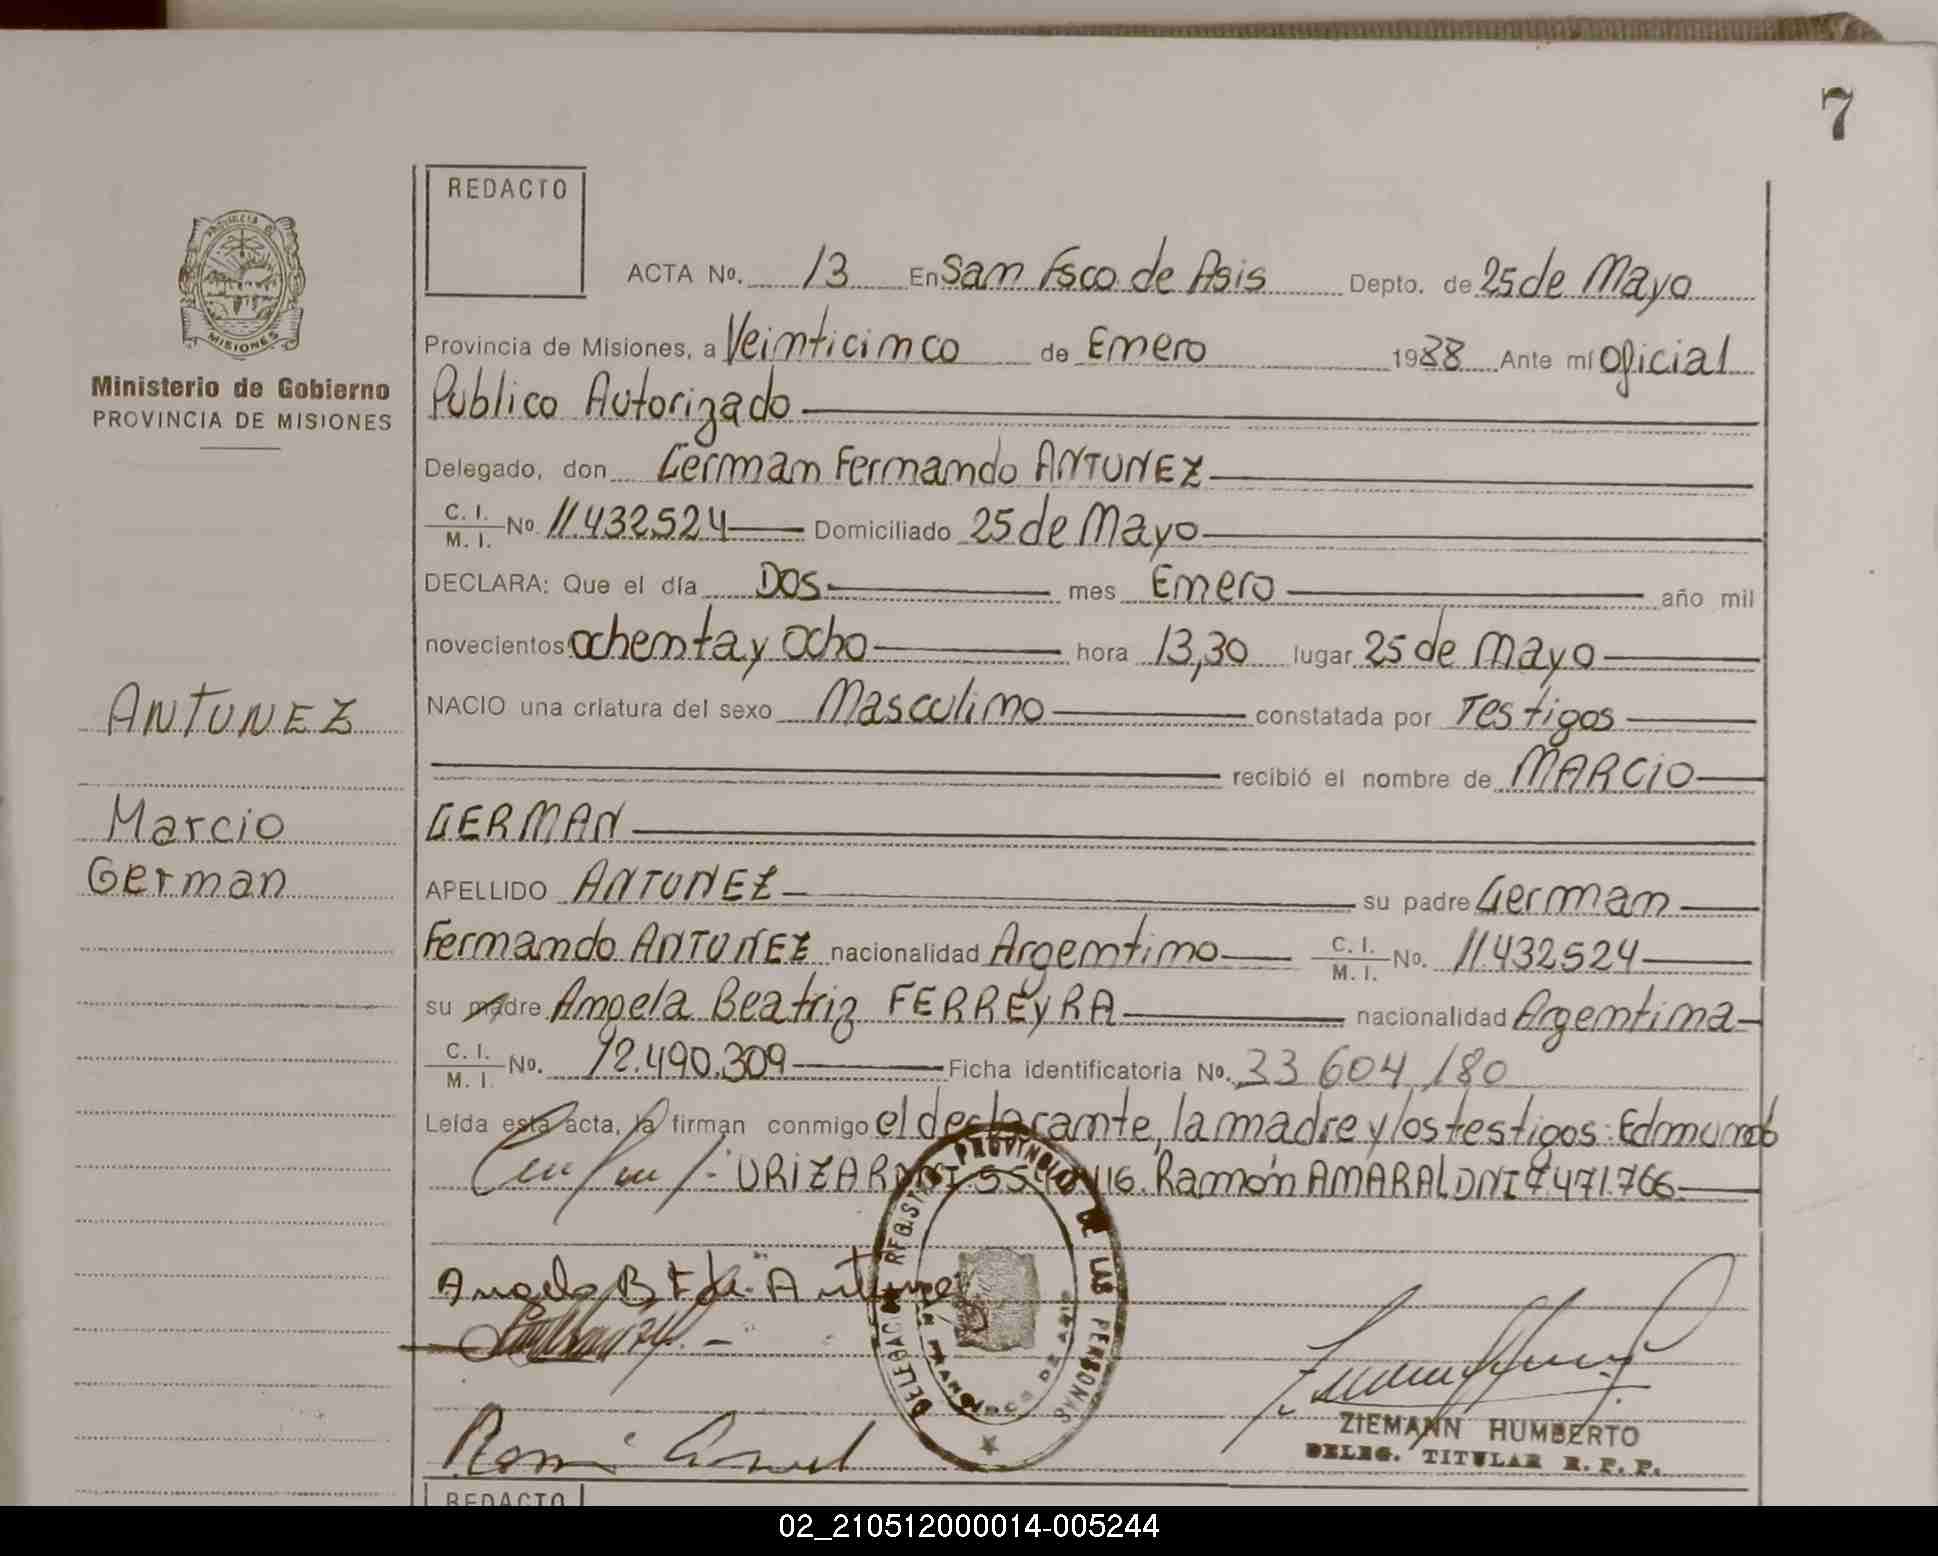 7
REDACTO
PROVINCIA DE
MISIONES
Ministerio de Gobierno
PROVINCIA DE MISIONES
ACTA No. 13 En San Fsco de Asis Depto. de 25 de Mayo
Provincia de Misiones, a Veinticinco de Enero 1988 Ante mí Oficial
Publico Autorizado
Delegado, don German Fernando ANTUNEZ
C. I.
M. I. No. 11.432524 Domiciliado 25 de Mayo
DECLARA: Que el día DOS mes Enero año mil
novecientos ochenta y Ocho hora 13,30 lugar 25 de Mayo
NACIO una criatura del sexo Masculino constatada por Testigos
recibió el nombre de MARCIO
GERMAN
APELLIDO ANTUNEZ su padre German
Fernando ANTUNEZ nacionalidad Argentino C. I.
M. I. No. 11.432524
su madre Angela Beatriz FERREyRA nacionalidad Argentina
C. I.
M. I. No. 12.490.309 Ficha identificatoria No. 33 604 180
Leída esta acta, la firman conmigo el declarante, la madre y los testigos: Edmundo
URIZAR DNI 116. Ramón AMARAL DNI 7.471.766
Angela B F de Antunez
ZIEMANN HUMBERTO
DELEG. TITULAR R. P. P.
DELEGACION REGISTRO PROVINCIAL DE LAS PERSONAS
SAN FRANCISCO DE ASIS
ANTUNEZ
Marcio
German
REDACTO
02_210512000014-005244